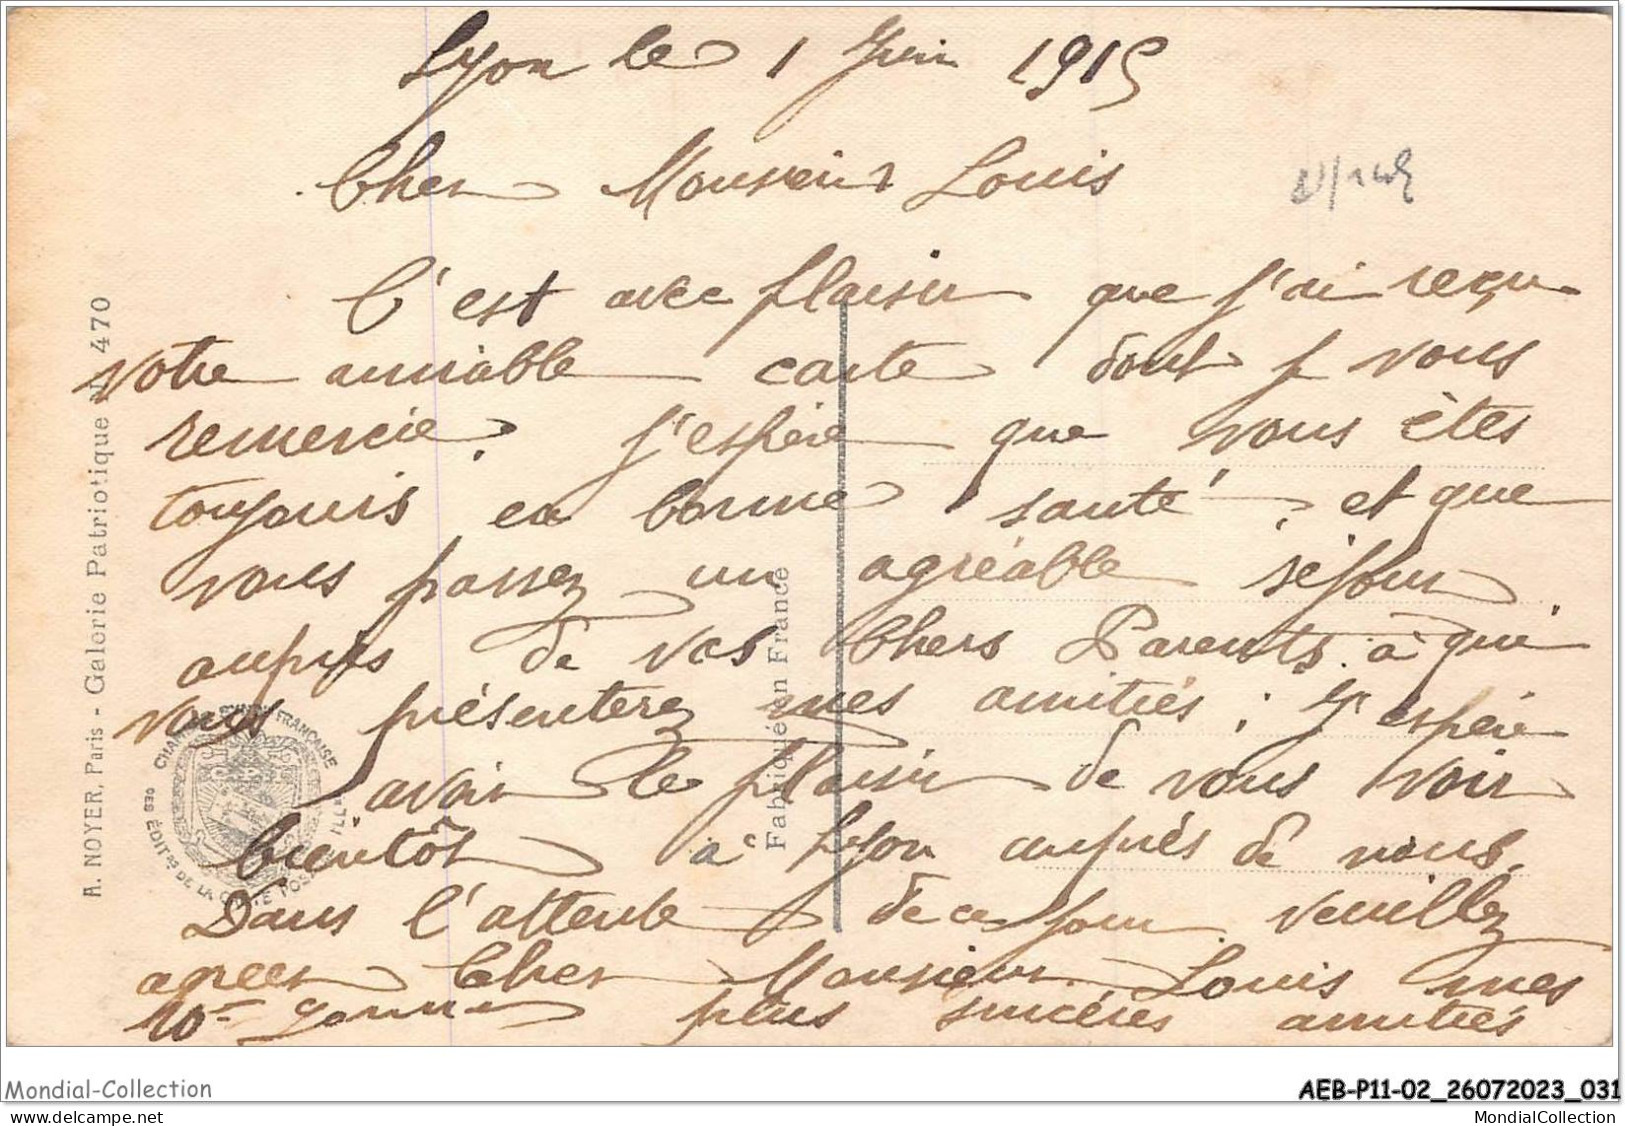 Lyon le 1 Juin 1915
Cher Monsieur Louis
C'est avec plaisir que j'ai reçu
votre aimable carte dont je vous
remercie. J'espère que vous êtes
toujours en bonne santé, et que
vous passez un agréable séjour
auprès de vos Chers Parents à qui
vous présenterez mes amitiés ; J'espère
avoir le plaisir de vous voir
bientôt à Lyon auprès de nous.
Dans l'attente de ce jour veuillez
agréer Cher Monsieur Louis mes
plus sincères amitiés
A. NOYER, Paris - Galerie Patriotique N° 470
Fabriqué en France
CHAMBRE SYND FRANÇAISE
DES ÉDIT.RS DE LA CARTE POSTALE ILL
Mondial-Collection
AEB-P11-02_26072023_031
MondialCollection
MondialCollection